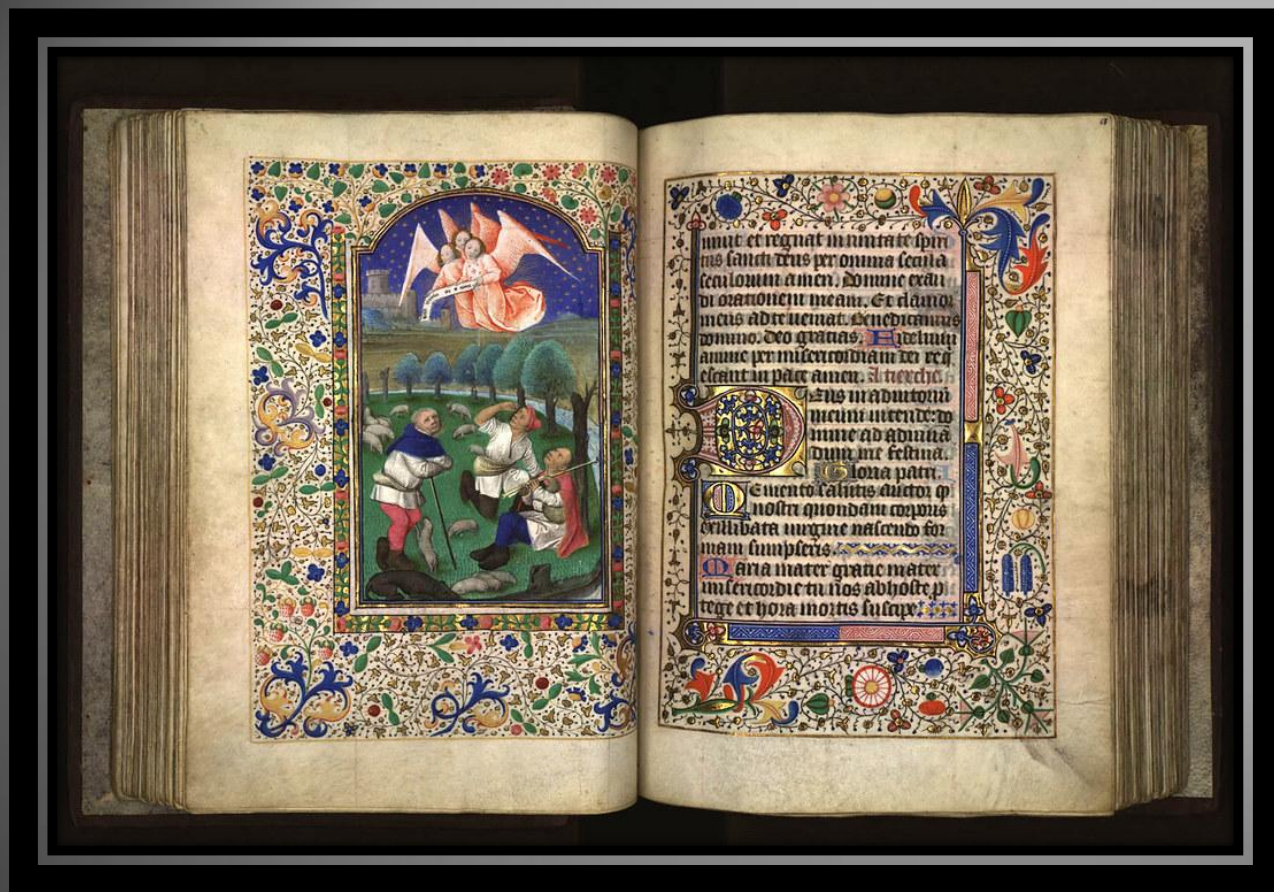 uiuit et regnat in unitate spiri
tus sancti deus per omnia secula
seculorum amen. Domine exau
di orationem meam. Et clamor
meus ad te ueniat. Benedicamus
domino. Deo gracias. Fidelium
anime per misericordiam dei req
escant in pace amen. A tierche.
Deus in adiutoriu
meum intende: do
mine ad adiuua
dum me festina.
Gloria patri.
Memento salutis auctor q
nostri quondam corporis
ex illibata uirgine nascendo for
mam sumpseris.
Maria mater gratie mater
misericordie tu nos ab hoste p
tege et hora mortis suscipe.